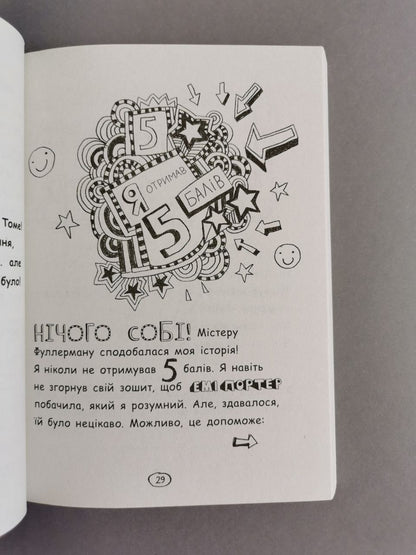 Томе!
ня,
. але
було!
5
Я ОТРИМАВ
5 БАЛІВ
НІЧОГО СОБІ! Містеру
Фуллерману сподобалася моя історія!
Я ніколи не отримував 5 балів. Я навіть
не згорнув свій зошит, щоб ЕМІ ПОРТЕР
побачила, який я розумний. Але, здавалося,
їй було нецікаво. Можливо, це допоможе:
29